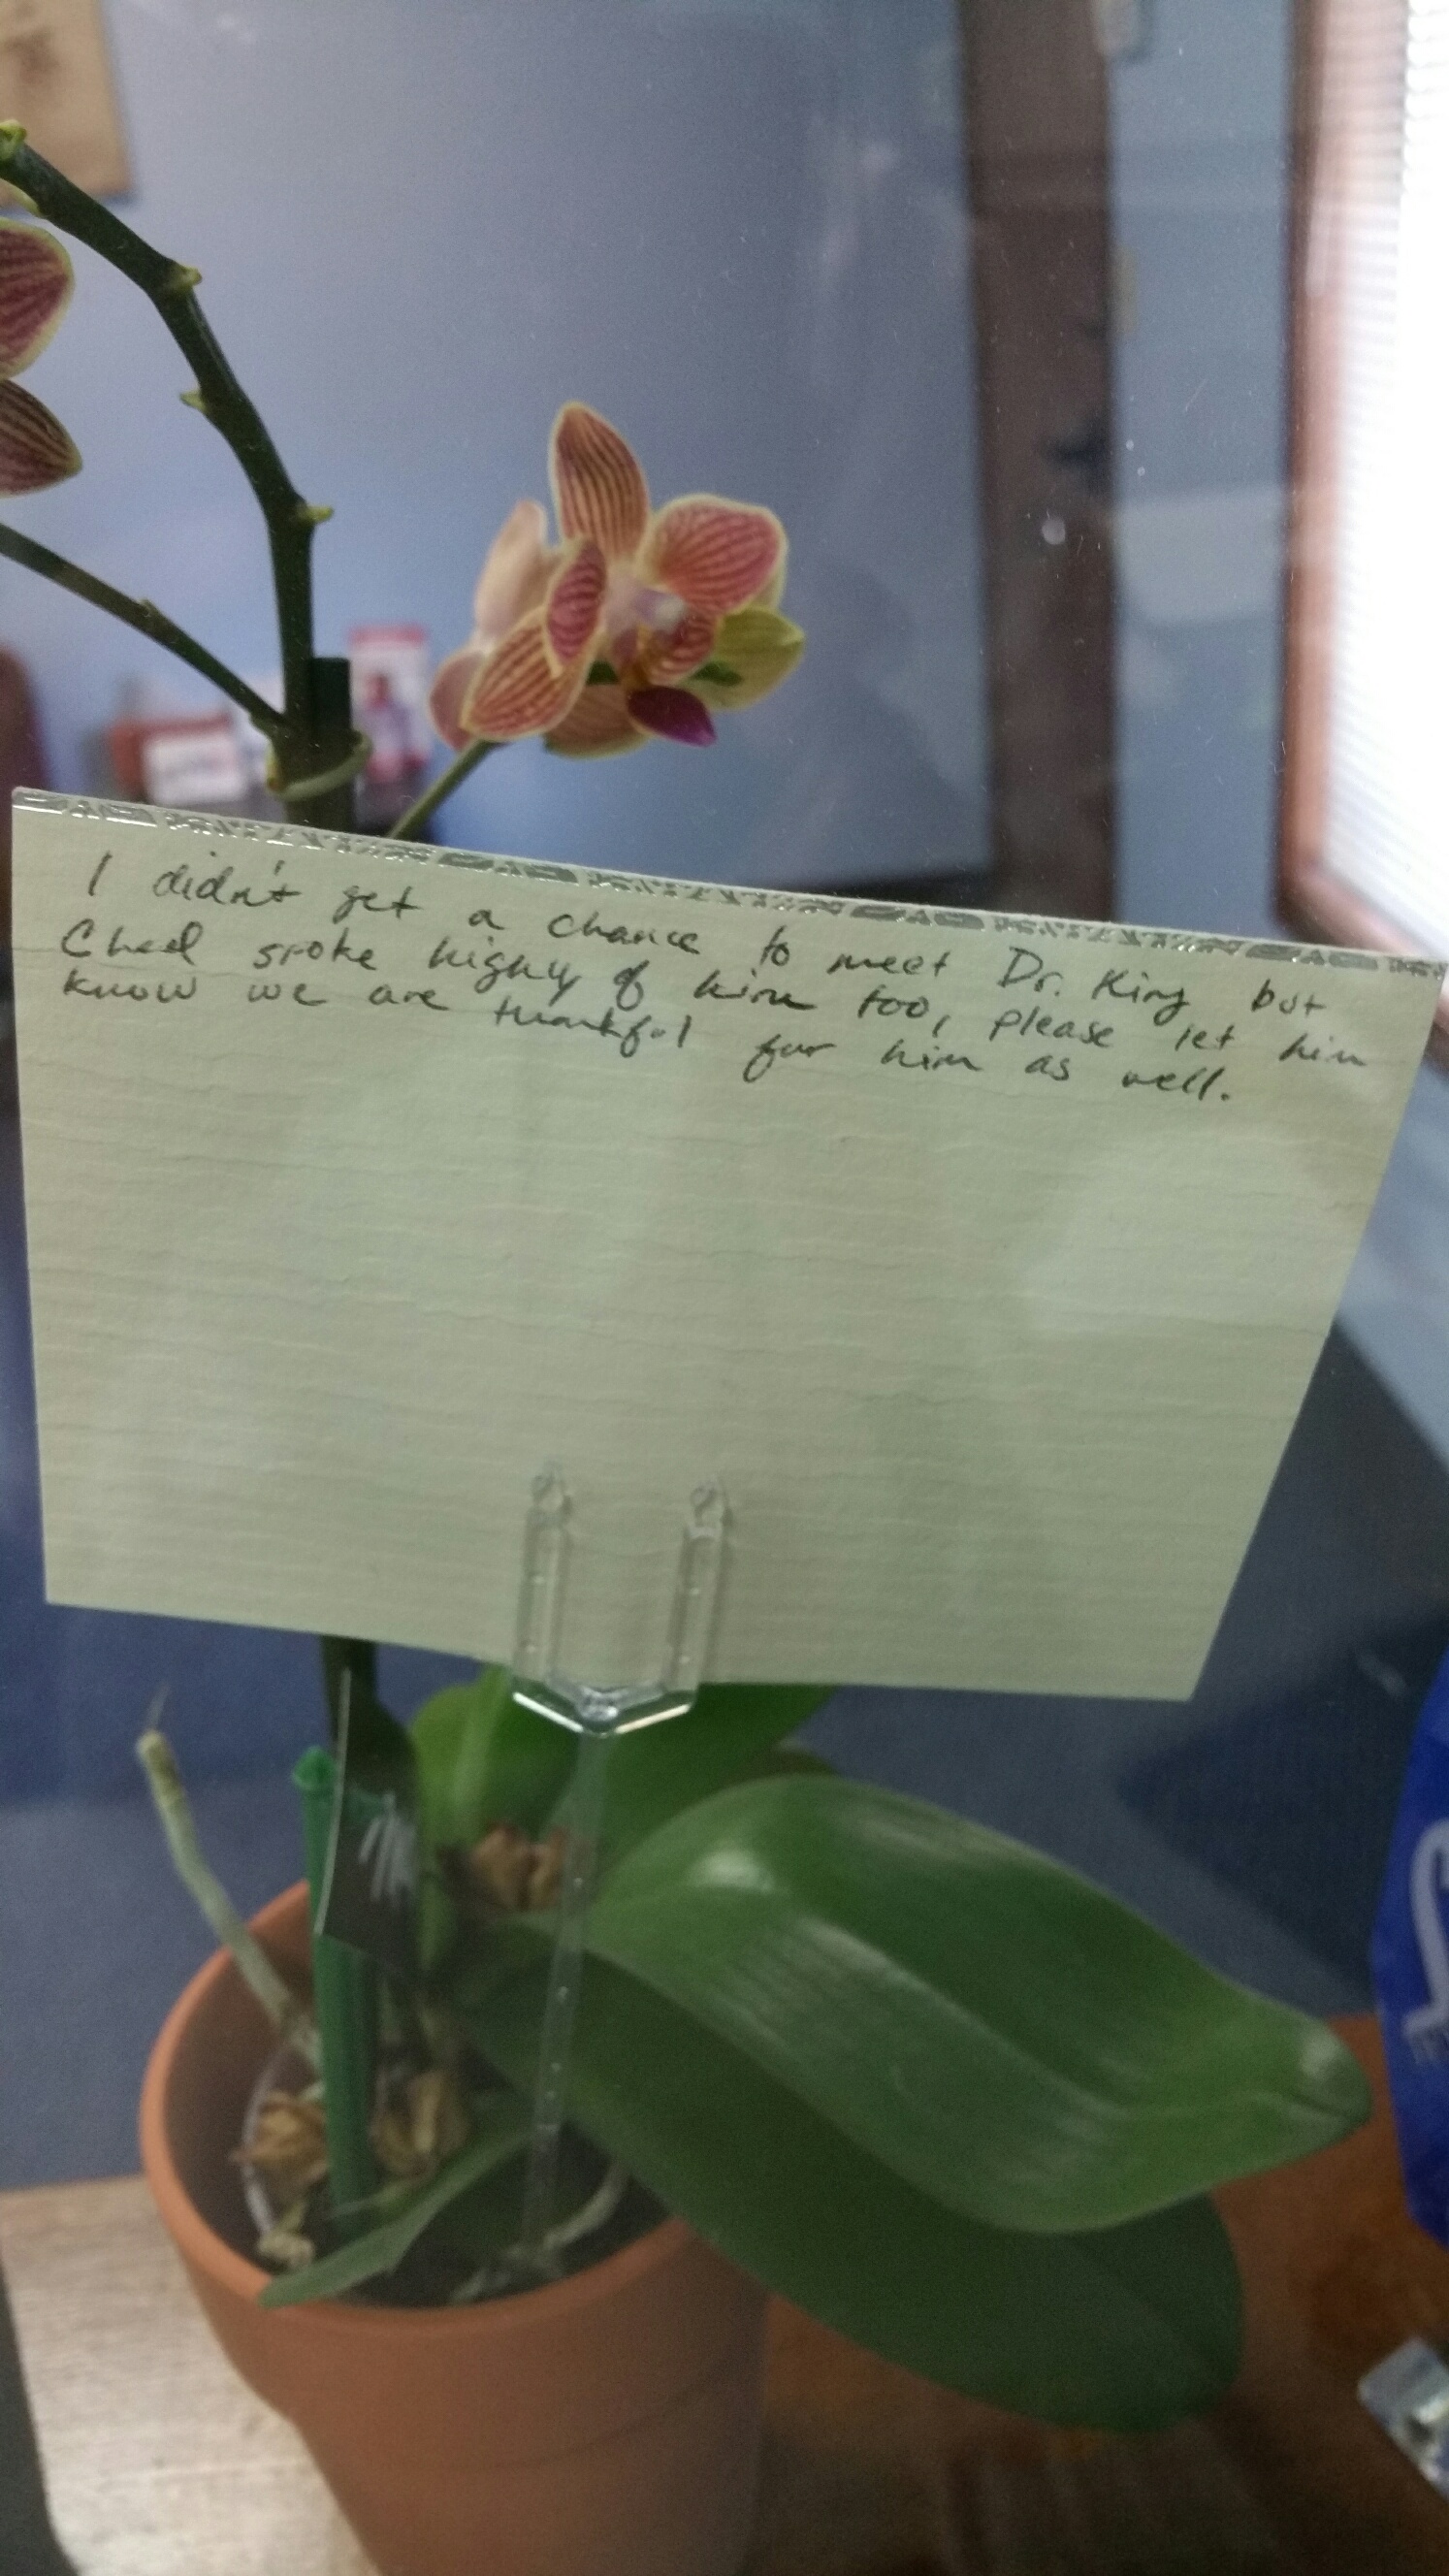 I didn't get a chance to meet Dr. King but
Chad spoke highly of him too, please let him
know we are thankful for him as well.